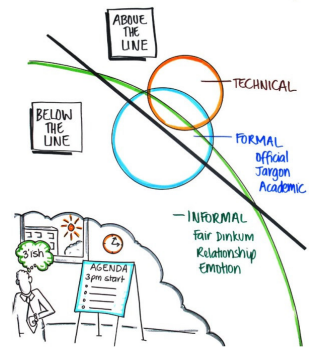 ABOVE
THE
LINE
TECHNICAL
BELOW
THE
LINE
FORMAL
Official
Jargon
Academic
INFORMAL
Fair Dinkum
Relationship
Emotion
3'ish
AGENDA
3pm start